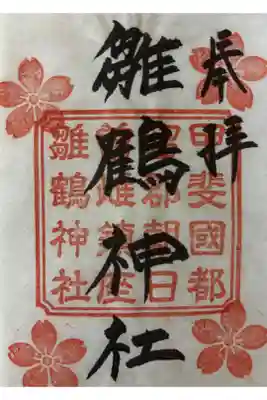 奉拝
雛鶴神社
甲斐國都
留郡朝日
雌鎮座
雛鶴神社